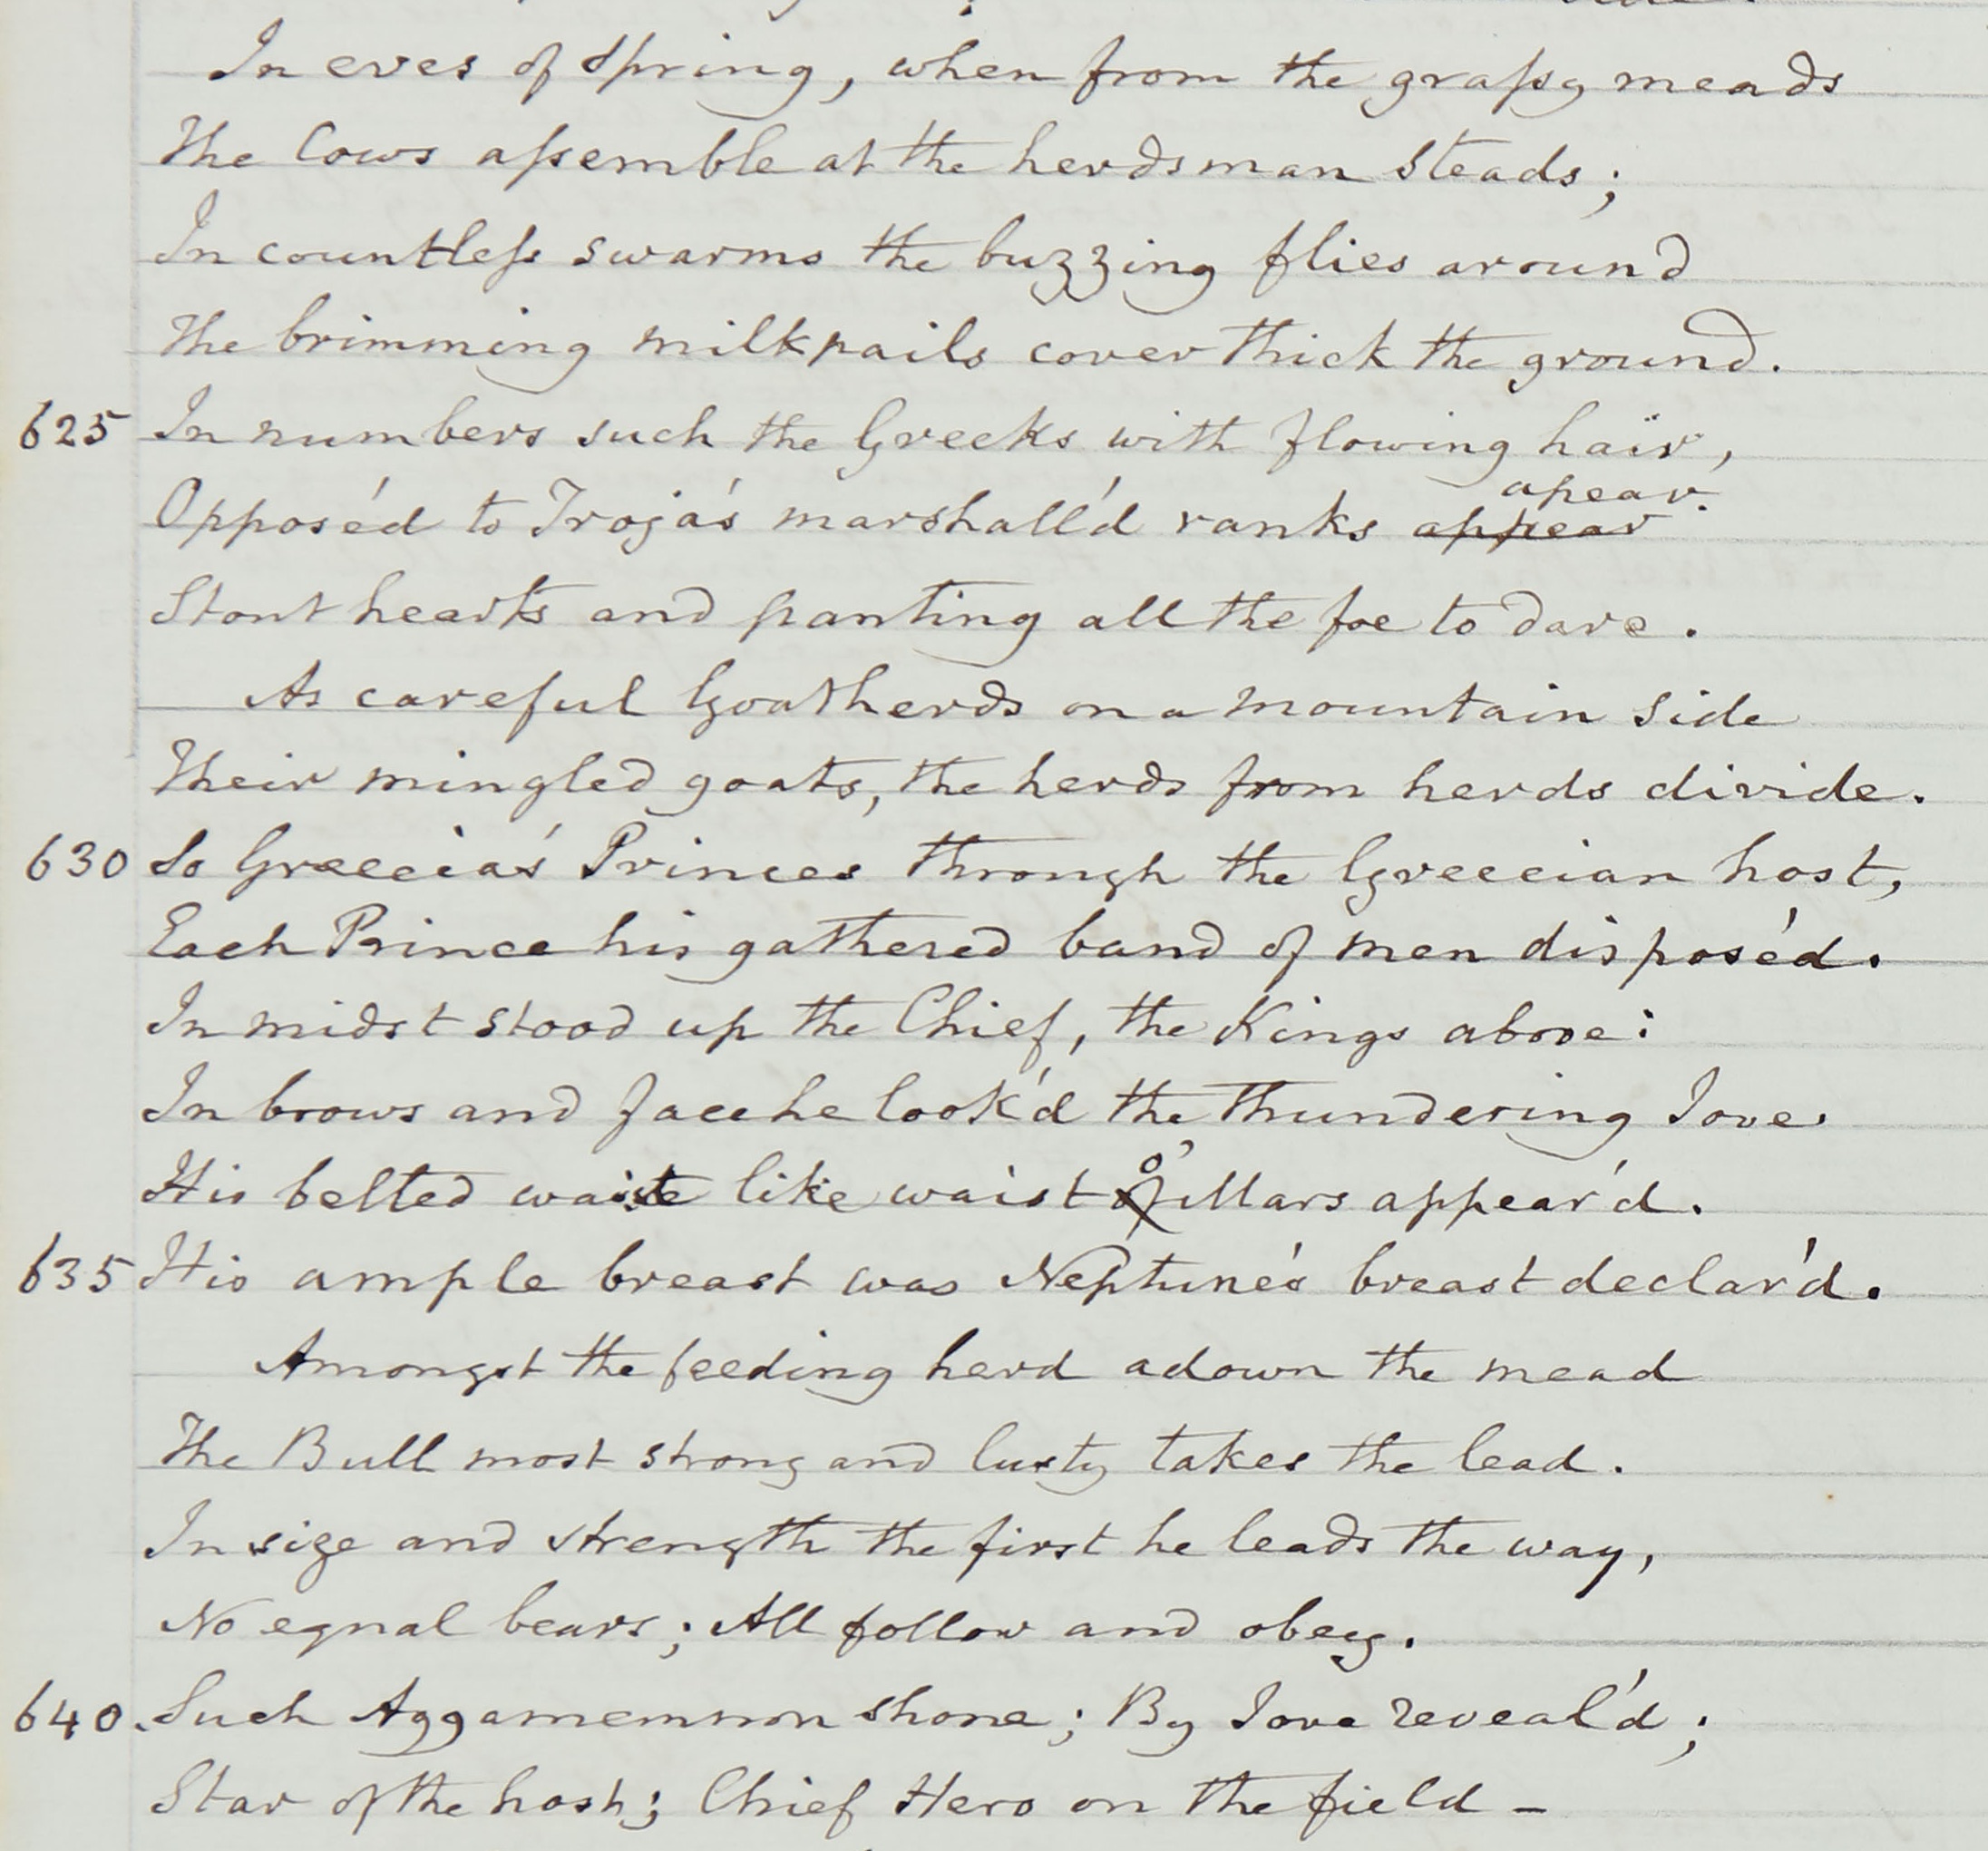 In eves of Spring, when from the grassy meads
The Cows assemble at the herdsman steads;
In countless swarms the buzzing flies around
The brimming milkpails cover thick the ground.
625 In numbers such the Greeks with flowing hair,
apear.
Oppos'd to Troja's marshall'd ranks appear
Stout hearts and panting all the foe to dare.
As careful Goatherds on a mountain side
Their mingled goats, the herds from herds divide.
630 So Græecia's Princes through the Greecian host,
Each Prince his gathered band of men dispos'd.
In midst stood up the Chief, the Kings above:
In brows and face he look'd the thundering Jove.
His belted waiste like waist o' pillars appear'd.
635 His ample breast was Neptune's breast declar'd.
Amongst the feeding herd adown the mead
The Bull most strong and lusty takes the lead.
In size and strength the first he leads the way,
No equal bears; All follow and obey.
640. Such Aggamemnon shone; By Jove reveal'd;
Star of the host; Chief Hero on the field -